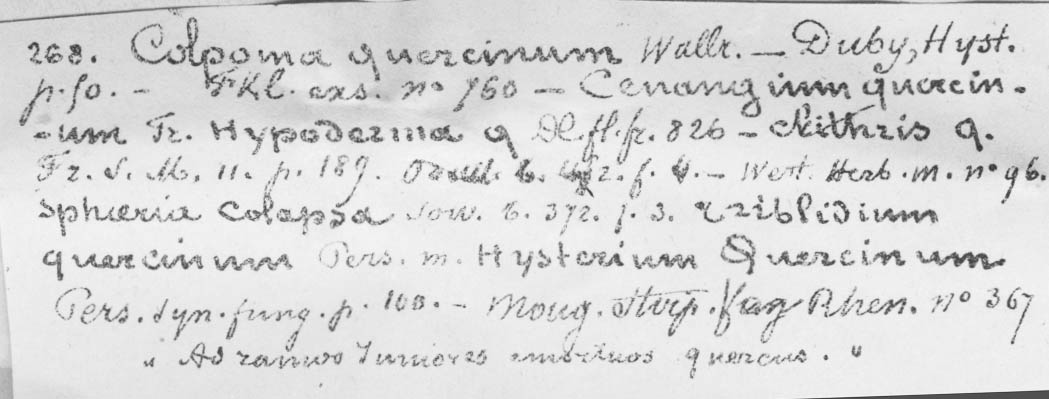 268. Colpoma quercinum Wallr. — Duby, Hyst.
p. 50. — FKl. exs. no 760 — Cenangium quercin-
-um Fr. Hypoderma q Dl. fl. fr. 826 — Clithris q.
Fr. S. M. 11. p. 189. t. f. — West. Herb. m. no 96.
Sphæria Colapsa Sow. t. 372. f. 3. Triblidium
quercinum Pers. m. Hysterium Quercinum
Pers. Syn. fung. p. 100. — Moug. Stirp. Rhen. no 367
" Ad ramos Juniores emortuos quercus. "